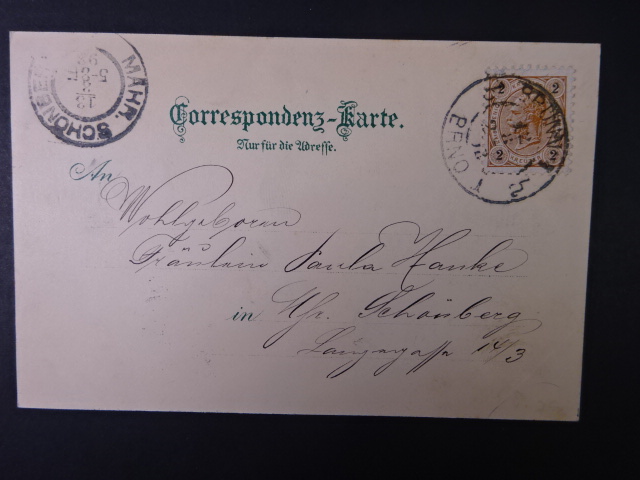 MÄHR. SCHÖNBE
Correspondenz-Karte.
2 2
2 2
BRÜNN
Nur für die Adresse.
An
Wohlgeboren
Fräulein Paula Hanke
in M. Schönberg
Langegasse 14/3